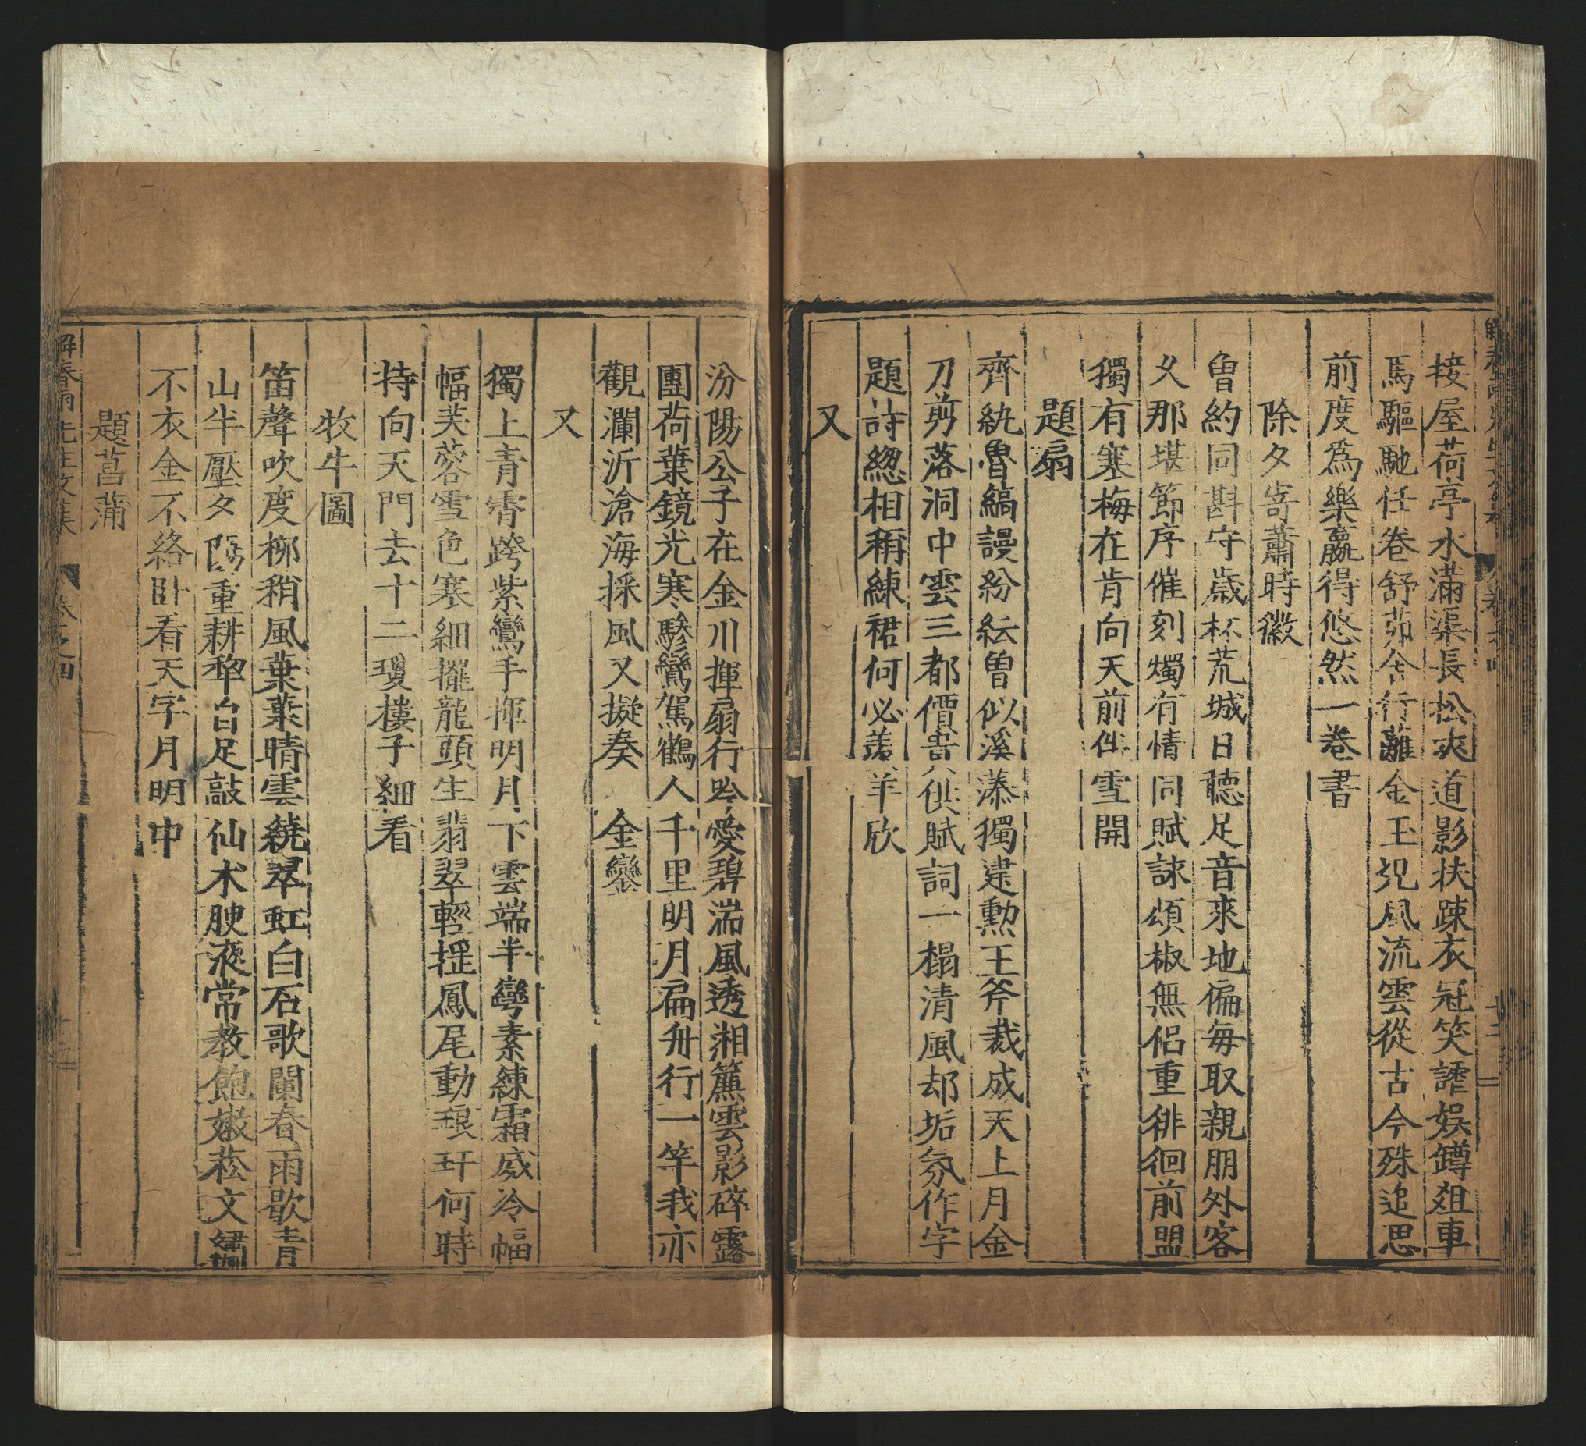 接屋荷亭水滿渠長松夾道影扶踈衣冠笑謔娱罇俎車
馬驅馳任卷舒茆舍行離金玉兕風流雲從古今殊追思
前度爲樂贏得悠然一卷書
除夕寄蕭時徽
曾約同斟守歲杯荒城日聽足音來地偏每取親朋外客
久那堪節序催刻燭有情同賦諫頌椒無侶重徘徊前盟
獨有塞梅在肯向天前伴雪開
題扇
齊紈魯縞謾紛紜曽似溪藤獨建勲王斧裁成天上月金
刀剪落洞中雲三都價貴供賦詞一榻清風却垢氛作字
題詩緫相稱練裙何必羡羊欣
又
汾陽公子在金川揮扇行吟愛碧湍風透湘簾雲影碎露
團荷葉鏡光寒驂鸞駕鶴人千里明月扁舟行一竿我亦
觀瀾沂滄海採風又擬奏 金鑾
又
獨上青霄跨紫鸞手揮明月下雲端半彎素練霜威冷幅
幅芙蓉雪色寒細擺龍頭生翡翠輕摇鳳尾動琅玕何時
持向天門去十二瓊樓子細看
牧牛圖
笛聲吹度柳稍風葉葉晴雲繞翠虹白石歌闌春雨歇青
山半壓夕陽重耕犂自足敲仙术腴液常教飽嫰菘文繡
不衣金不絡卧看天字月明中
題菖蒲
解春雨先生文集 卷之四 十二